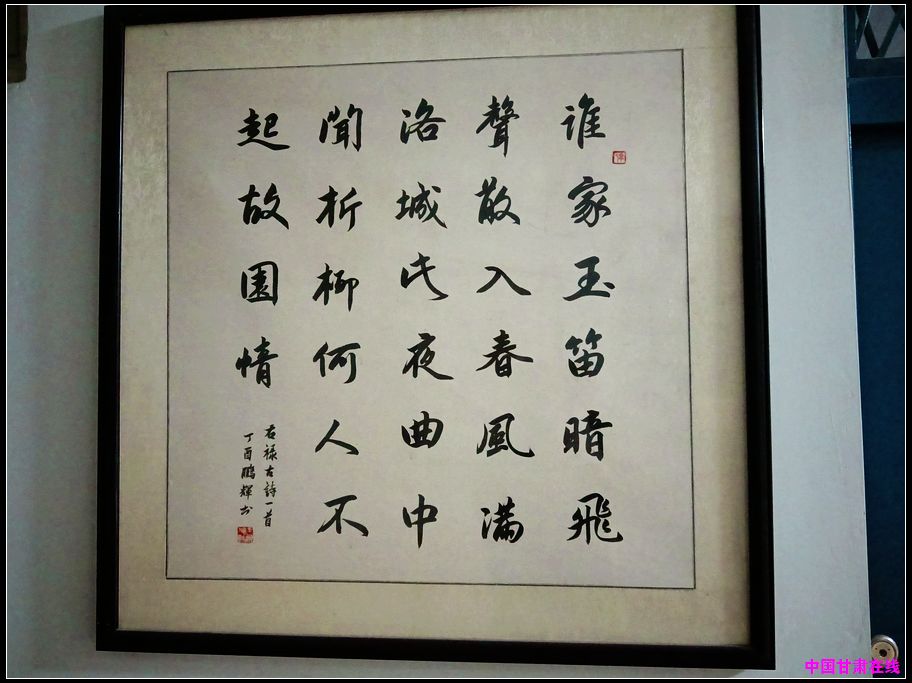 誰家玉笛暗飛
聲散入春風滿
洛城此夜曲中
聞折柳何人不
起故園情
右禄古詩一首
丁酉鵬輝书
中国甘肃在线